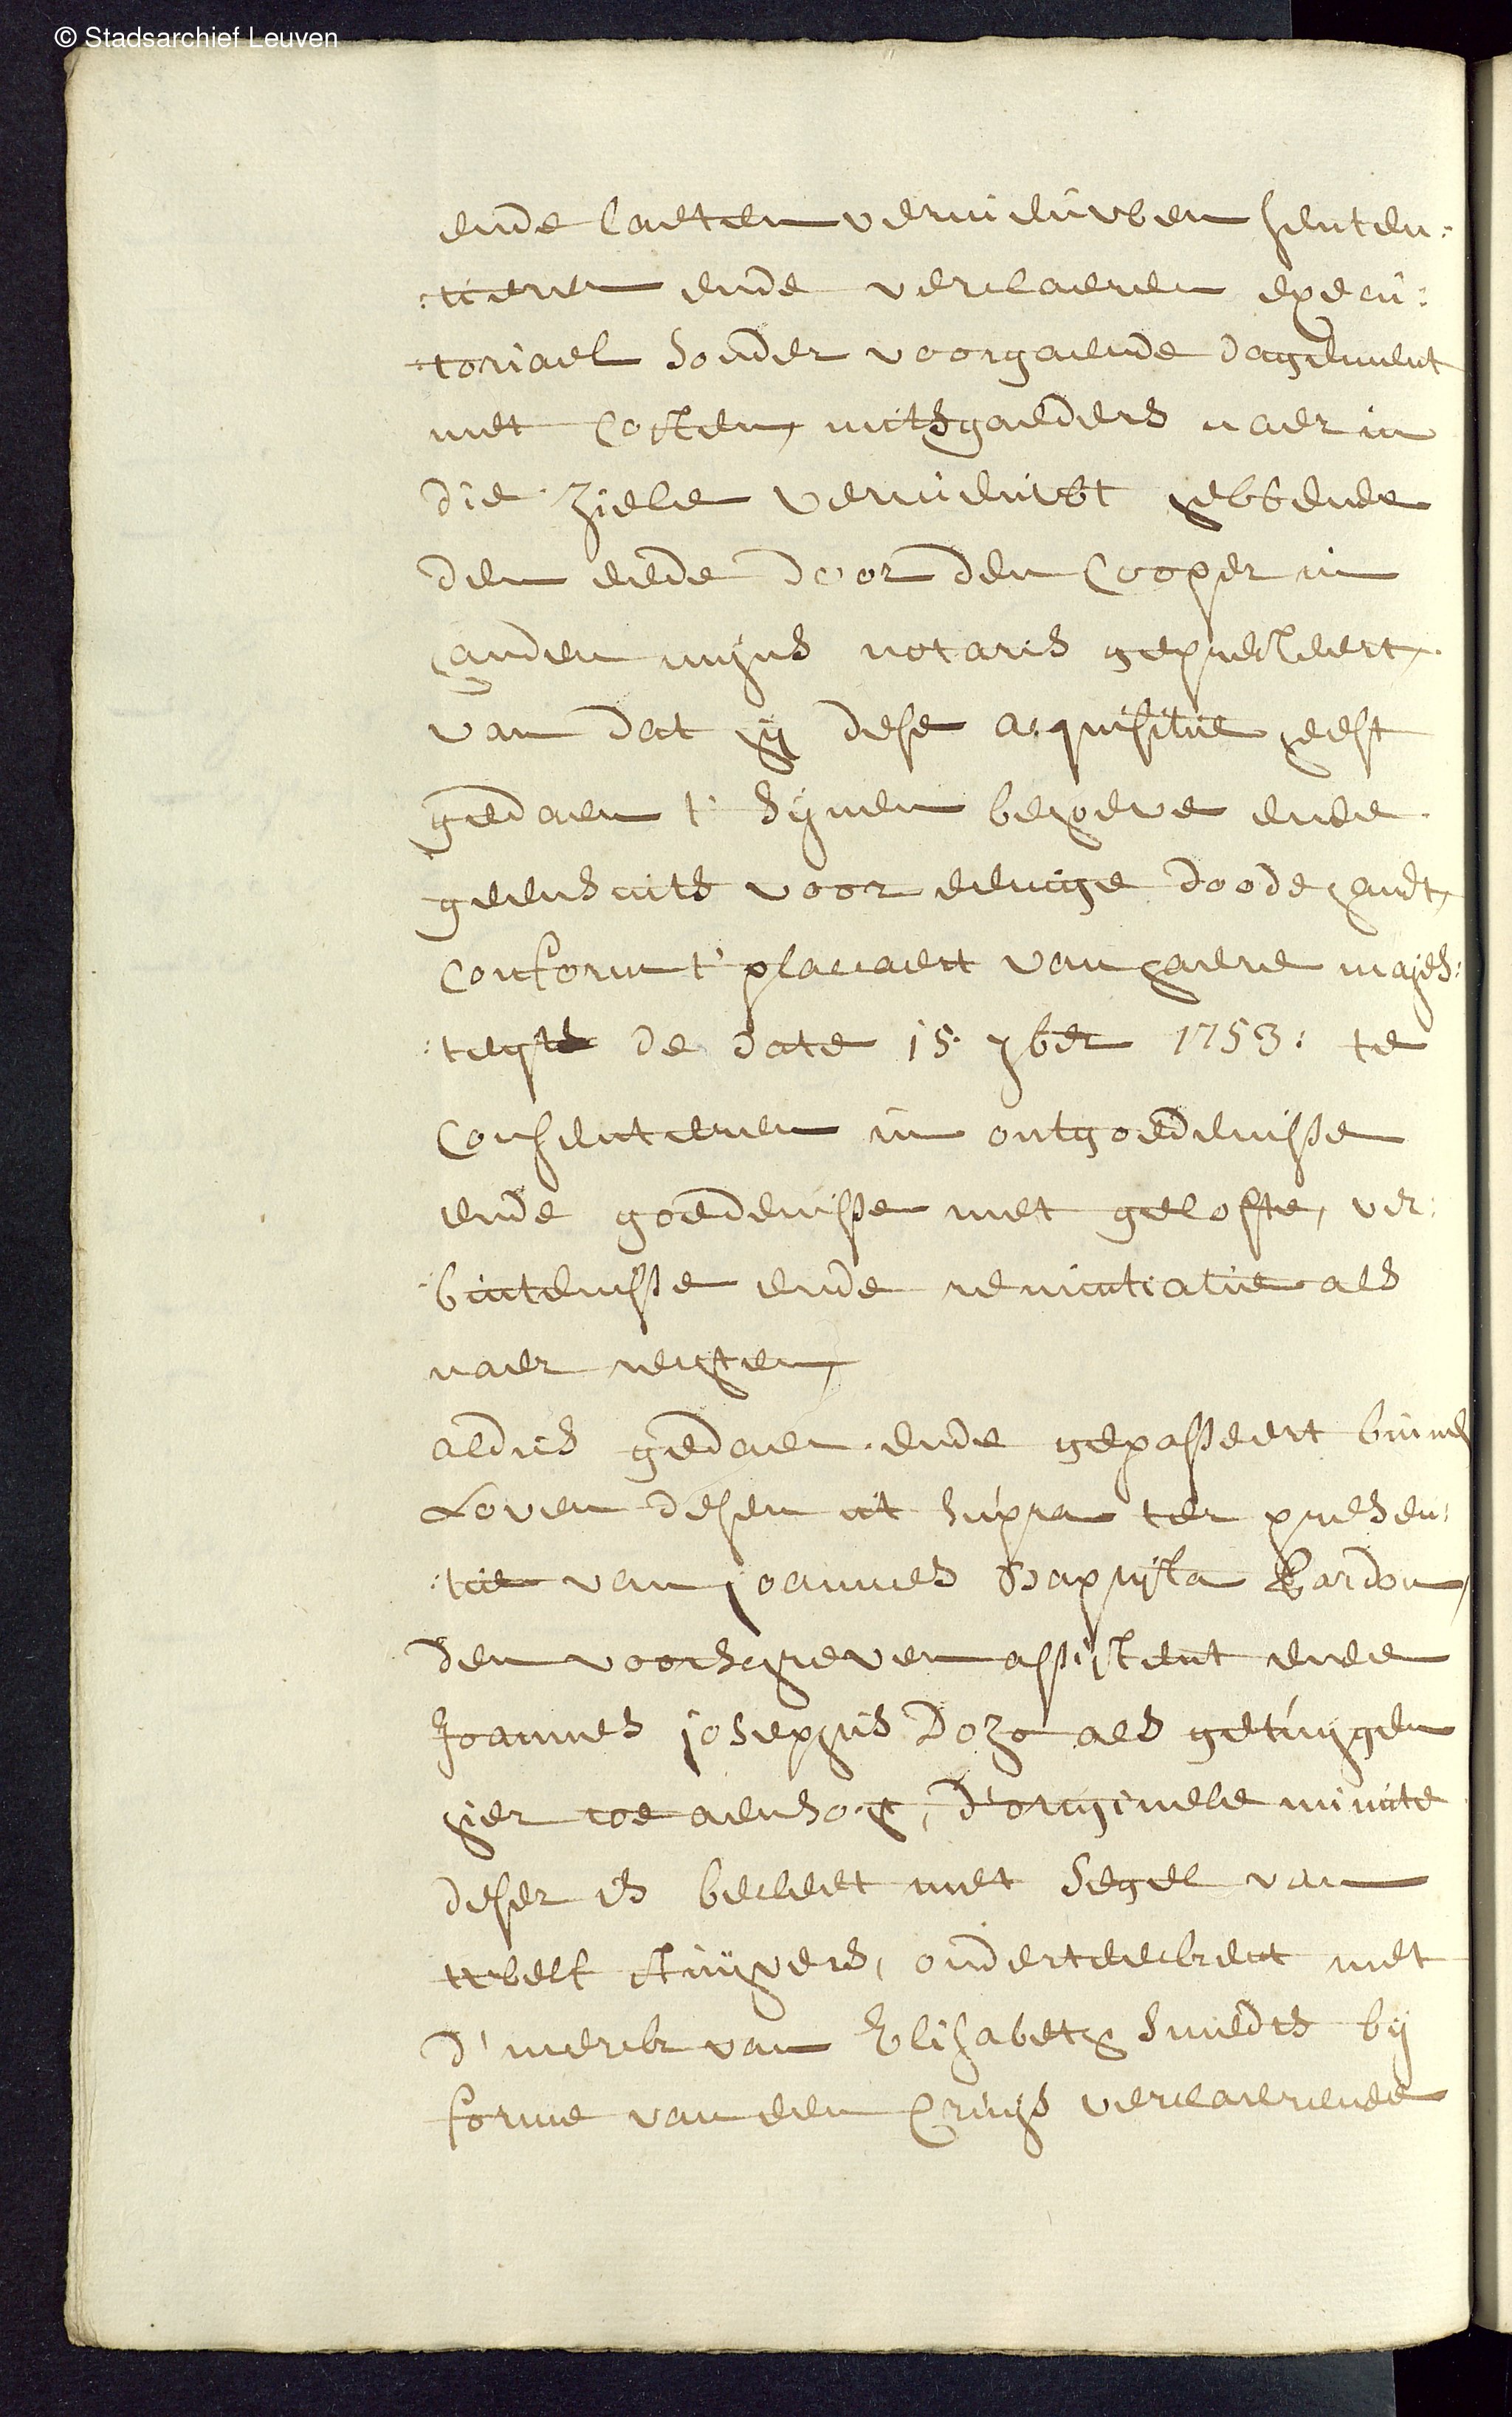 © Stadsarchief Leuven
ende laeten vernieuwen senten:
:tieren ende verclaeren execu:
:toriael sonder voorgaende dagement
met costen, mitsgaeders naer in
die ziele vernieuwt hebbende
den eede door den cooper in
handen mijns notaris gepresteert,
van dat hij dese acquisitie heeft
gedaen t' sijnen behoeve ende
geensints voor eenige doode handt,
conform t' placcaert van haere majes:
:teyts de date 15. 7ber 1753: te
consenteren in ontgoedenisse
ende goedenisse met gelofte, ver:
:bintenisse ende renuntiatie als
naer rechten,
aldus gedaen ende gepasseert binnen
Loven desen ut supra ter presen:
:tie van joannes Baptista Bardon,
den voorschreven assistent ende
Joannes josephus Dozo als getuygen
hier toe aensocht, d'origineele minute
deser is becleet met segel van
twelf stuyvers, onderteeckent met
d' merck van Elisabeth Smedts bij
forme van een cruys verclaerende